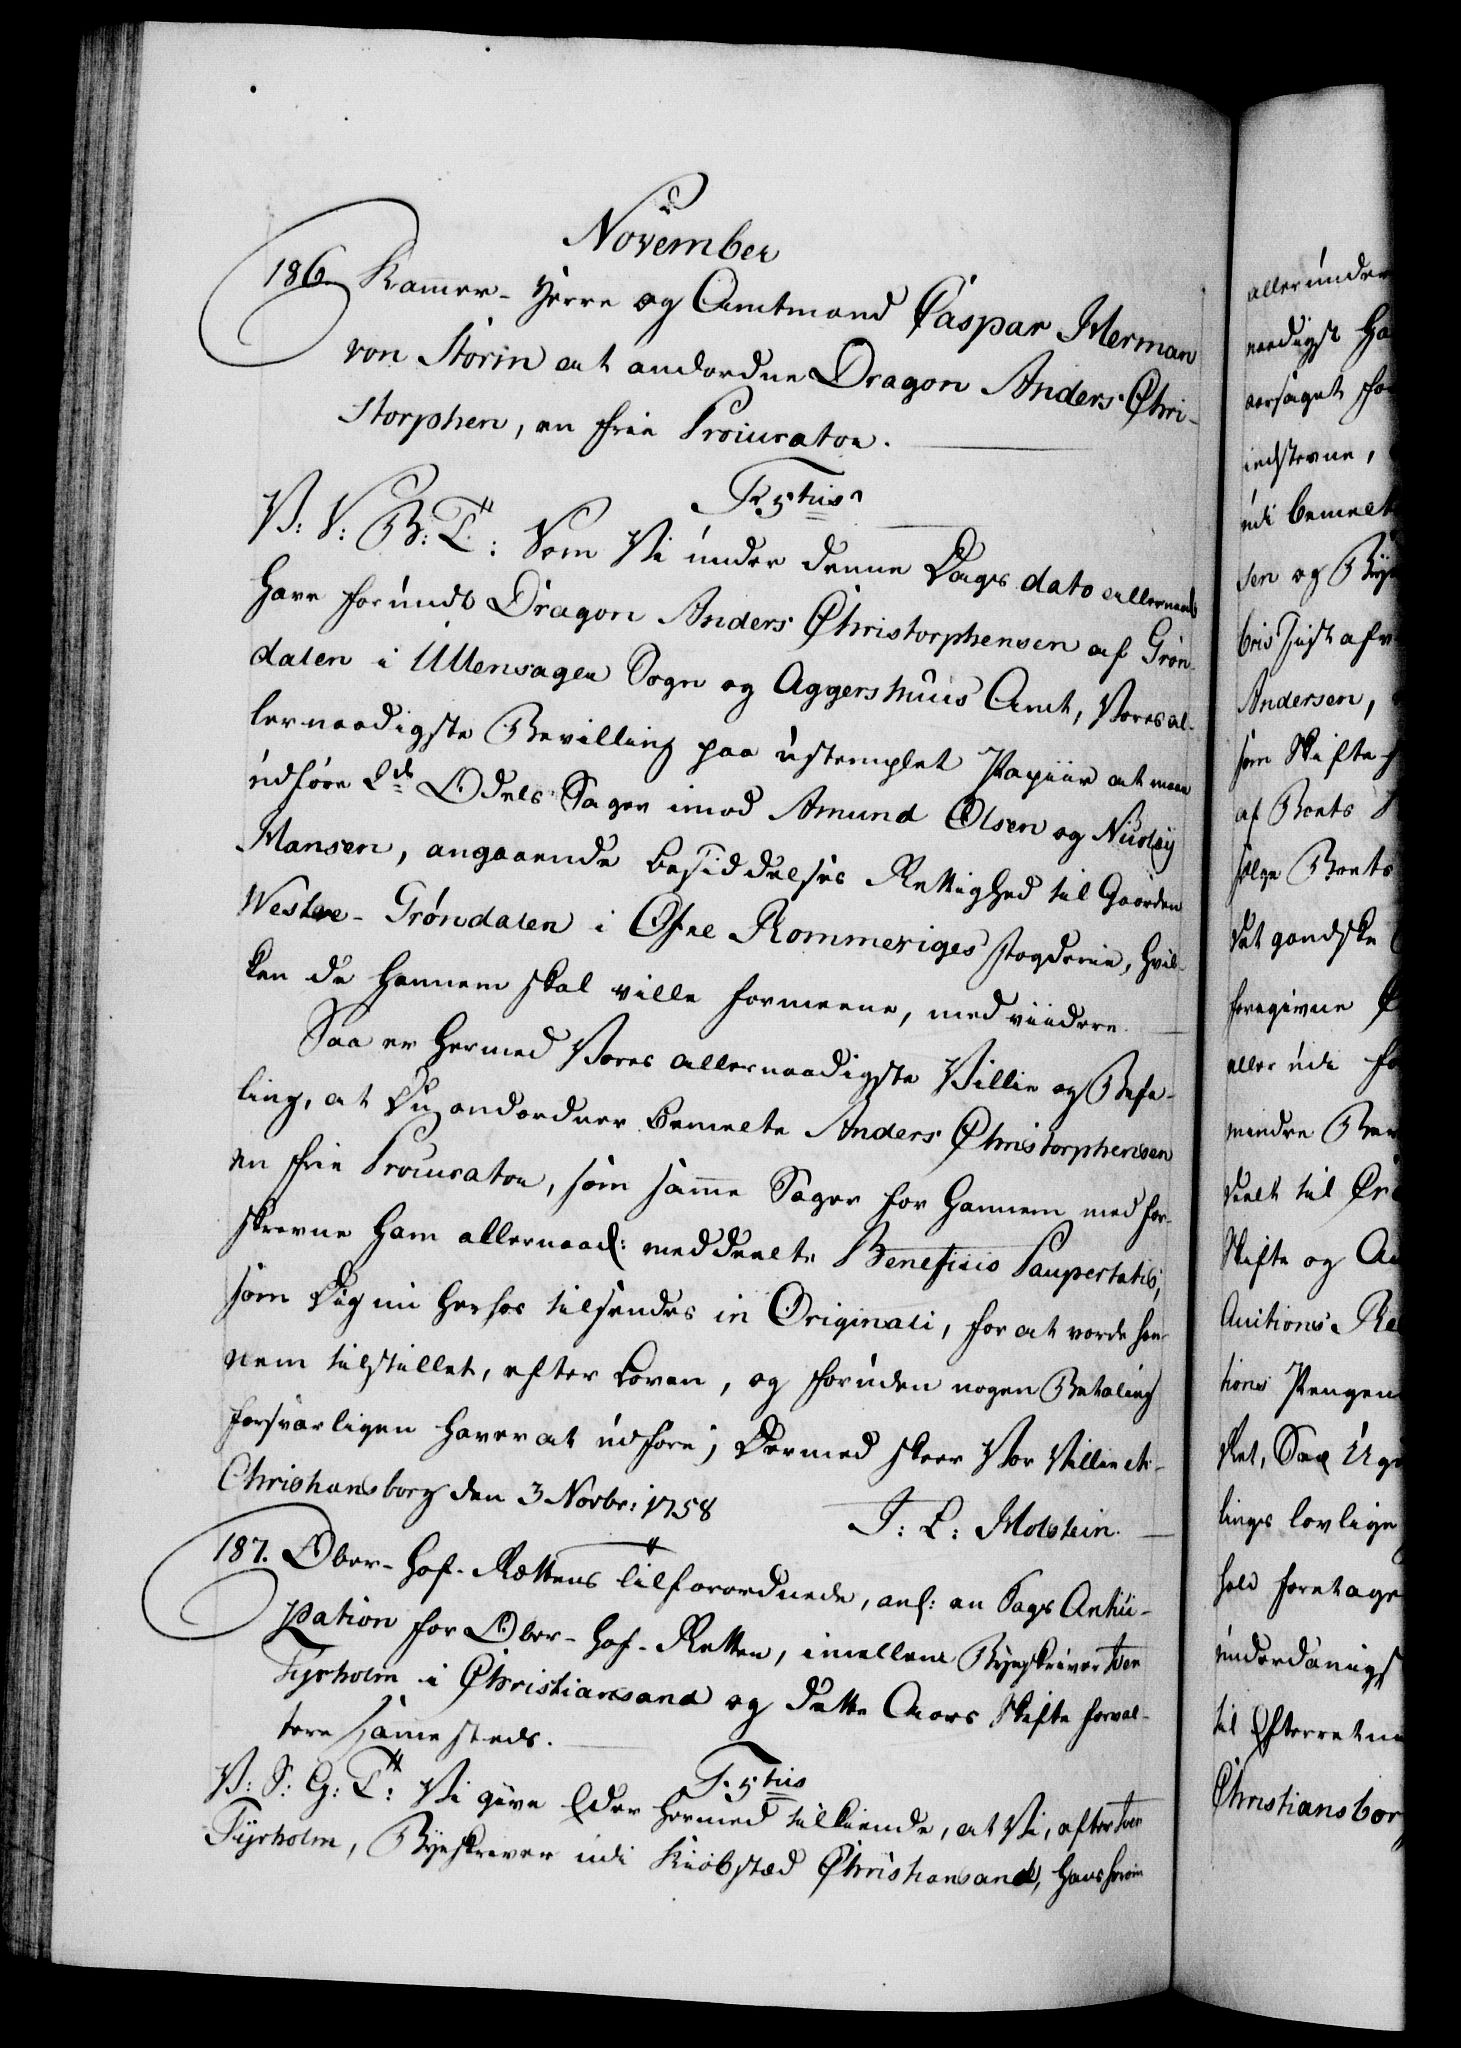 November
186. Kammer-Herre og Amtmand Caspar Herman
von Storm at anordne Dragon Anders Chri-
storphen, en frie Procurator.
F. 5tus
V: V: B: T: Som Vi under denne Dags dato allernaad
have forundt Dragon Anders Christorphensen af Grøn-
dalen i Ullensager Sogn og Aggershuus Amt, Vores al-
lernaadigste Bevilling paa ustemplet Papiir at maae
udføre 2de Odels Sager imod Amund Olsen og
Hansen, angaaende besiddelses Rettighed til Gaarden
Westre-Grøndalen i Øfre Rommeriges Fogderie, hvil-
ken de hannem skal ville formeene, med viidere.
Saa er hermed Vores allernaadigste Villie og Befa-
ling, at Du andordner bemelte Anders Christorphensen
en frie Procurator, som samme Sager for hannem med for-
skrevne ham allernaad: meddeelte Beneficio Paupertatis,
som Dig nu herhos tilsendes in Originali, for at vorde han-
nem tilstillet, efter Loven, og foruden nogen Betaling
forsvarligen haver at udføre; Dermed skeer Vor Villie etc
Christiansborg den 3 Novbr: 1758
J: L: Holstein.
187. Ober-Hof-Rettens Tilforordnede, anl: en Sags Antici-
pation for Ober-Hof-Retten, imellem Byeskriver Iver
Tyrholm i Christiansand og dette Aars Skifte forval-
tere sammesteds.
F. 5tus
V: S: G: T: Vi give Eder hermed tilkiende, at Vi, efter Iver
Tyrholm, Byeskriver udi Kiøbstæd Christiansand, hans herom
allerunder
naadigst ha
aarsaget for
indstevne,
udi bemelt
sen og Bÿe
bris sidst afv
Andersen,
som Skifte-f
af Boets
sælge Boets
det gandske
foregivne
aller udi fo
mindre
deelt til
Skifte og A
Auctions Re
tions Pengen
Ret, Saa
lings lovlige
hold foretage
underdanigst
til Efterretni
Christiansborg